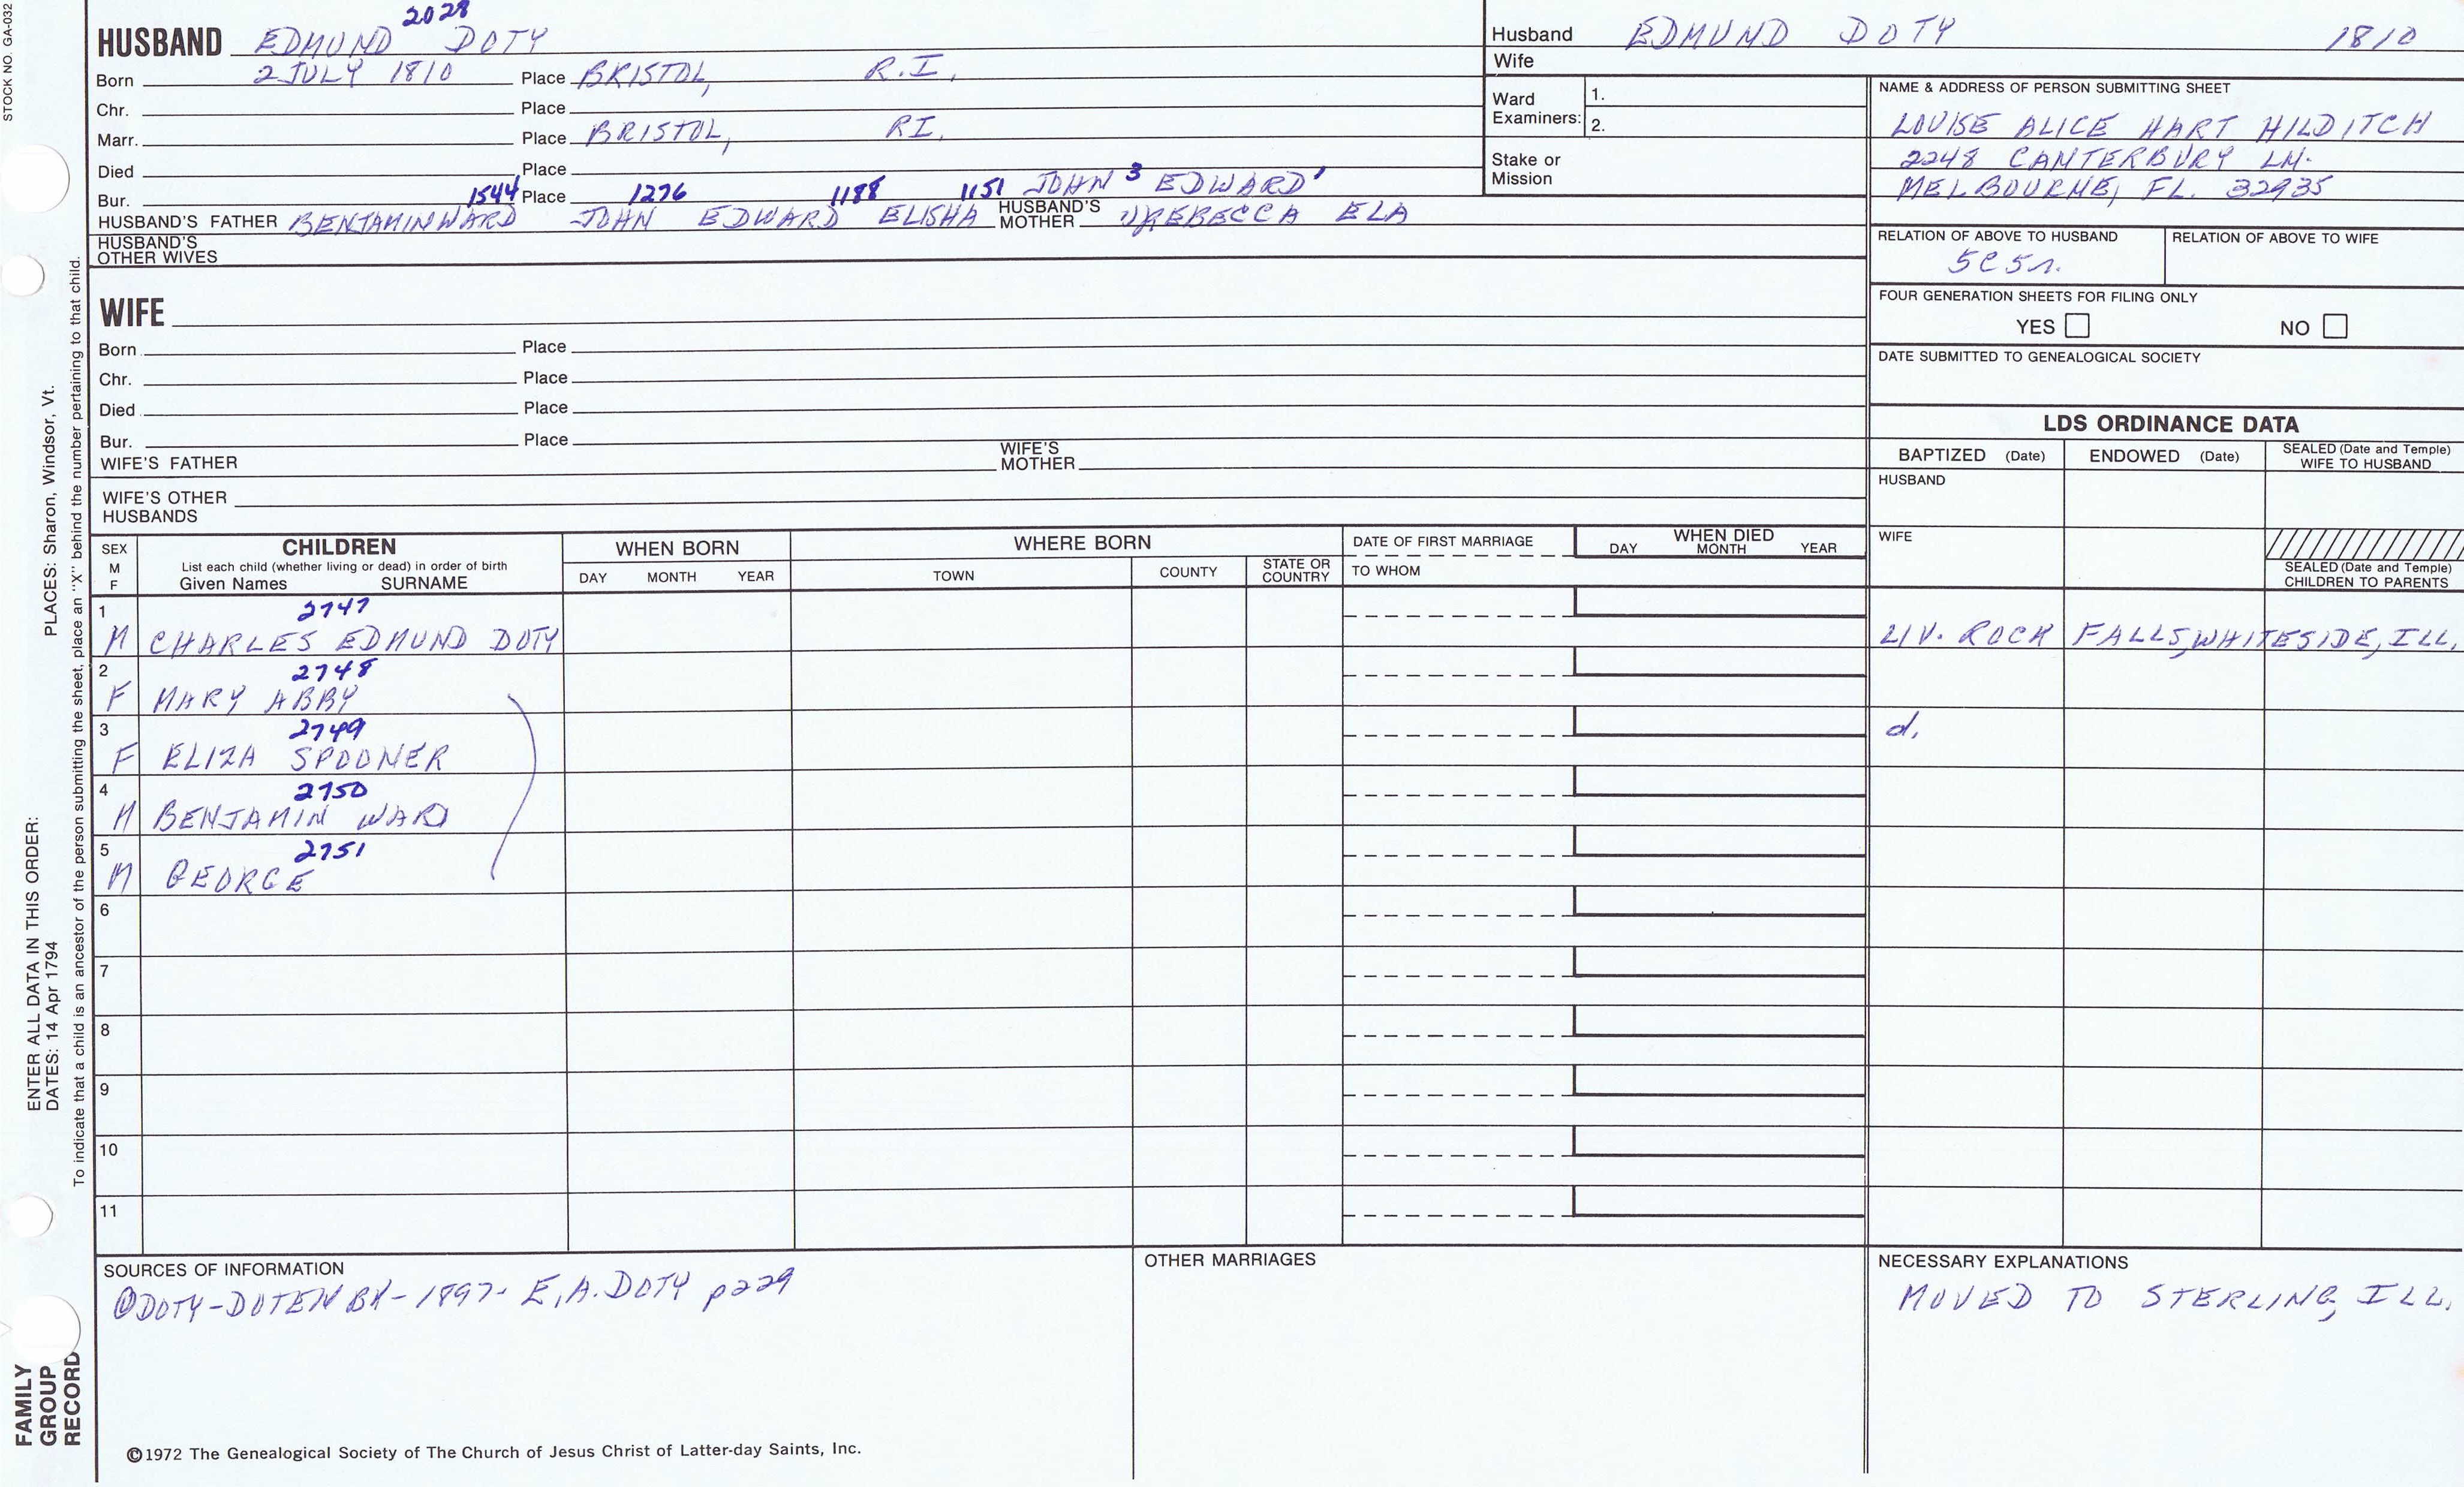 STOCK NO. GA-032
2028
HUSBAND EDMUND DOTY
Born 2 JULY 1810 Place BRISTOL, R.I.
Chr. Place
Marr. Place BRISTOL, RI.
Died Place
Bur. 1544 Place 1276 1188 1151 JOHN 3 EDWARD 1
HUSBAND'S FATHER BENJAMIN WARD JOHN EDWARD ELISHA HUSBAND'S MOTHER 1) REBECCA ELA
HUSBAND'S OTHER WIVES
Husband EDMUND DOTY 1810
Wife
Ward Examiners: 1.
2.
Stake or Mission
NAME & ADDRESS OF PERSON SUBMITTING SHEET
LOUISE ALICE HART HILDITCH
2248 CANTERBURY LN.
MELBOURNE, FL. 32935
RELATION OF ABOVE TO HUSBAND RELATION OF ABOVE TO WIFE
5C5r.
FOUR GENERATION SHEETS FOR FILING ONLY
YES NO
DATE SUBMITTED TO GENEALOGICAL SOCIETY
WIFE
Born Place
Chr. Place
Died Place
Bur. Place
WIFE'S FATHER WIFE'S MOTHER
WIFE'S OTHER HUSBANDS
LDS ORDINANCE DATA
BAPTIZED (Date) ENDOWED (Date) SEALED (Date and Temple) WIFE TO HUSBAND
HUSBAND
WIFE
SEALED (Date and Temple) CHILDREN TO PARENTS
SEX M F
CHILDREN
List each child (whether living or dead) in order of birth
Given Names SURNAME
WHEN BORN
DAY MONTH YEAR
WHERE BORN
TOWN COUNTY STATE OR COUNTRY
DATE OF FIRST MARRIAGE
TO WHOM
WHEN DIED
DAY MONTH YEAR
1 2747
M CHARLES EDMUND DOTY LIV. ROCK FALLS, WHITESIDE, ILL.
2 2748
F MARY ABBY
3 2749 d.
F ELIZA SPOONER
4 2750
M BENJAMIN WARD
5 2751
M GEORGE
6
7
8
9
10
11
SOURCES OF INFORMATION
① DOTY-DOTEN BK-1897- E.A. DOTY p229
OTHER MARRIAGES
NECESSARY EXPLANATIONS
MOVED TO STERLING, ILL.
©1972 The Genealogical Society of The Church of Jesus Christ of Latter-day Saints, Inc.
FAMILY GROUP RECORD
ENTER ALL DATA IN THIS ORDER:
DATES: 14 Apr 1794
PLACES: Sharon, Windsor, Vt.
To indicate that a child is an ancestor of the person submitting the sheet, place an "X" behind the number pertaining to that child.